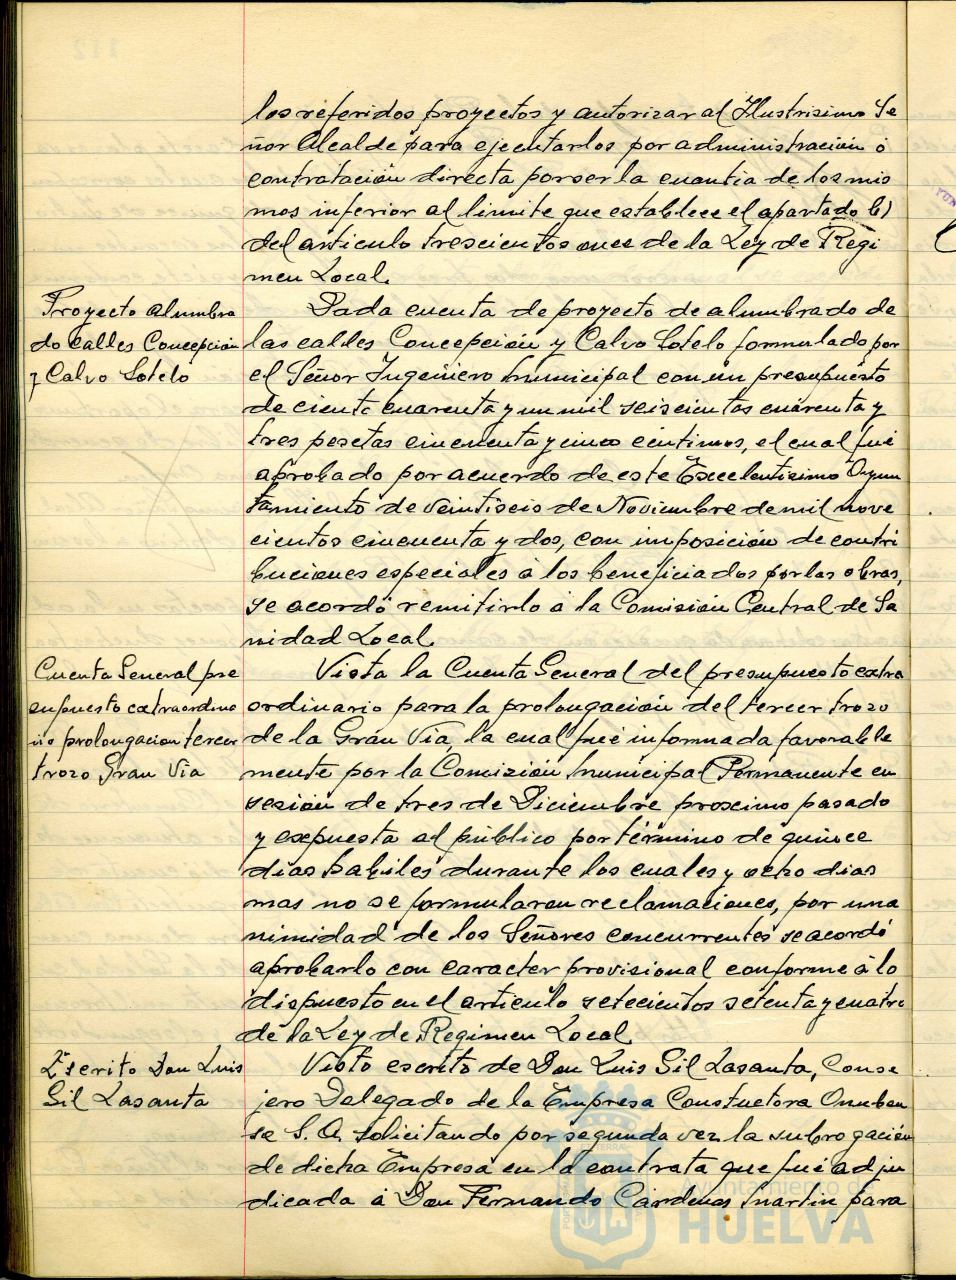 los referidos proyectos y autorizar al Ilustrisimo Se
ñor Alcalde para ejecutarlos por administración ó
contratación directa por ser la cuantia de los mis
mos inferior al limite que establece el apartado b)
del articulo trescientos once de la Ley de Regi
men Local.
Proyecto alumbra
do calles Concepción
y Calvo Sotelo
Dada cuenta de proyecto de alumbrado de
las calles Concepción y Calvo Sotelo formulado por
el Señor Ingeniero municipal con un presupuesto
de ciento cuarenta y un mil seiscientas cuarenta y
tres pesetas cincuenta y cinco centimos, el cual fué
aprobado por acuerdo de este Excelentisimo Ayun
tamiento de veintiseis de Noviembre de mil nove
cientos cincuenta y dos, con imposición de contri
buciones especiales á los beneficiados por las obras,
se acordó remitirlo á la Comisión Central de Sa
nidad Local.
Cuenta General pre
supuesto extraordina
rio prolongacion tercer
trozo Gran Via
Vista la Cuenta General del presupuesto extra
ordinario para la prolongación del tercer trozo
de la Gran Vía, la cual fué informada favorable
mente por la Comisión Municipal Permanente en
sesión de tres de Diciembre proximo pasado
y expuesta al público por término de quince
dias habiles durante los cuales y ocho dias
mas no se formularon reclamaciones, por una
nimidad de los Señores concurrentes se acordó
aprobarlo con caracter provisional conforme á lo
dispuesto en el articulo setecientos setenta y cuatro
de la Ley de Regimen Local.
Escrito Don Luis
Gil Lasanta
Visto escrito de Don Luis Gil Lasanta, Conse
jero Delegado de la Empresa Constuctora Onuben
se S. A. solicitando por segunda vez la subrogación
de dicha Empresa en la contrata que fué adju
dicada á Don Fernando Cárdenas Martin para
Ayuntamiento de
HUELVA